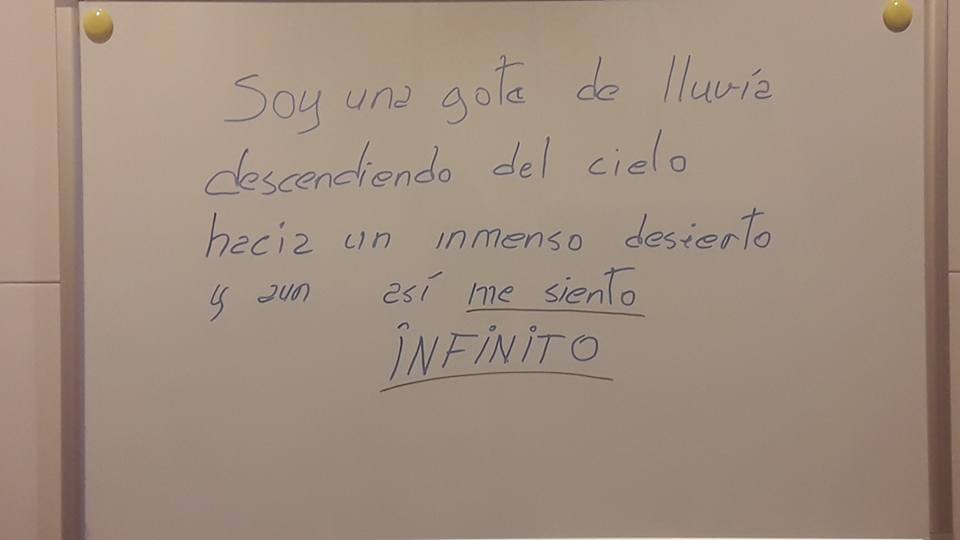 Soy una gota de lluvia
descendiendo del cielo
hacia un inmenso desierto
y aun así me siento
INFINITO